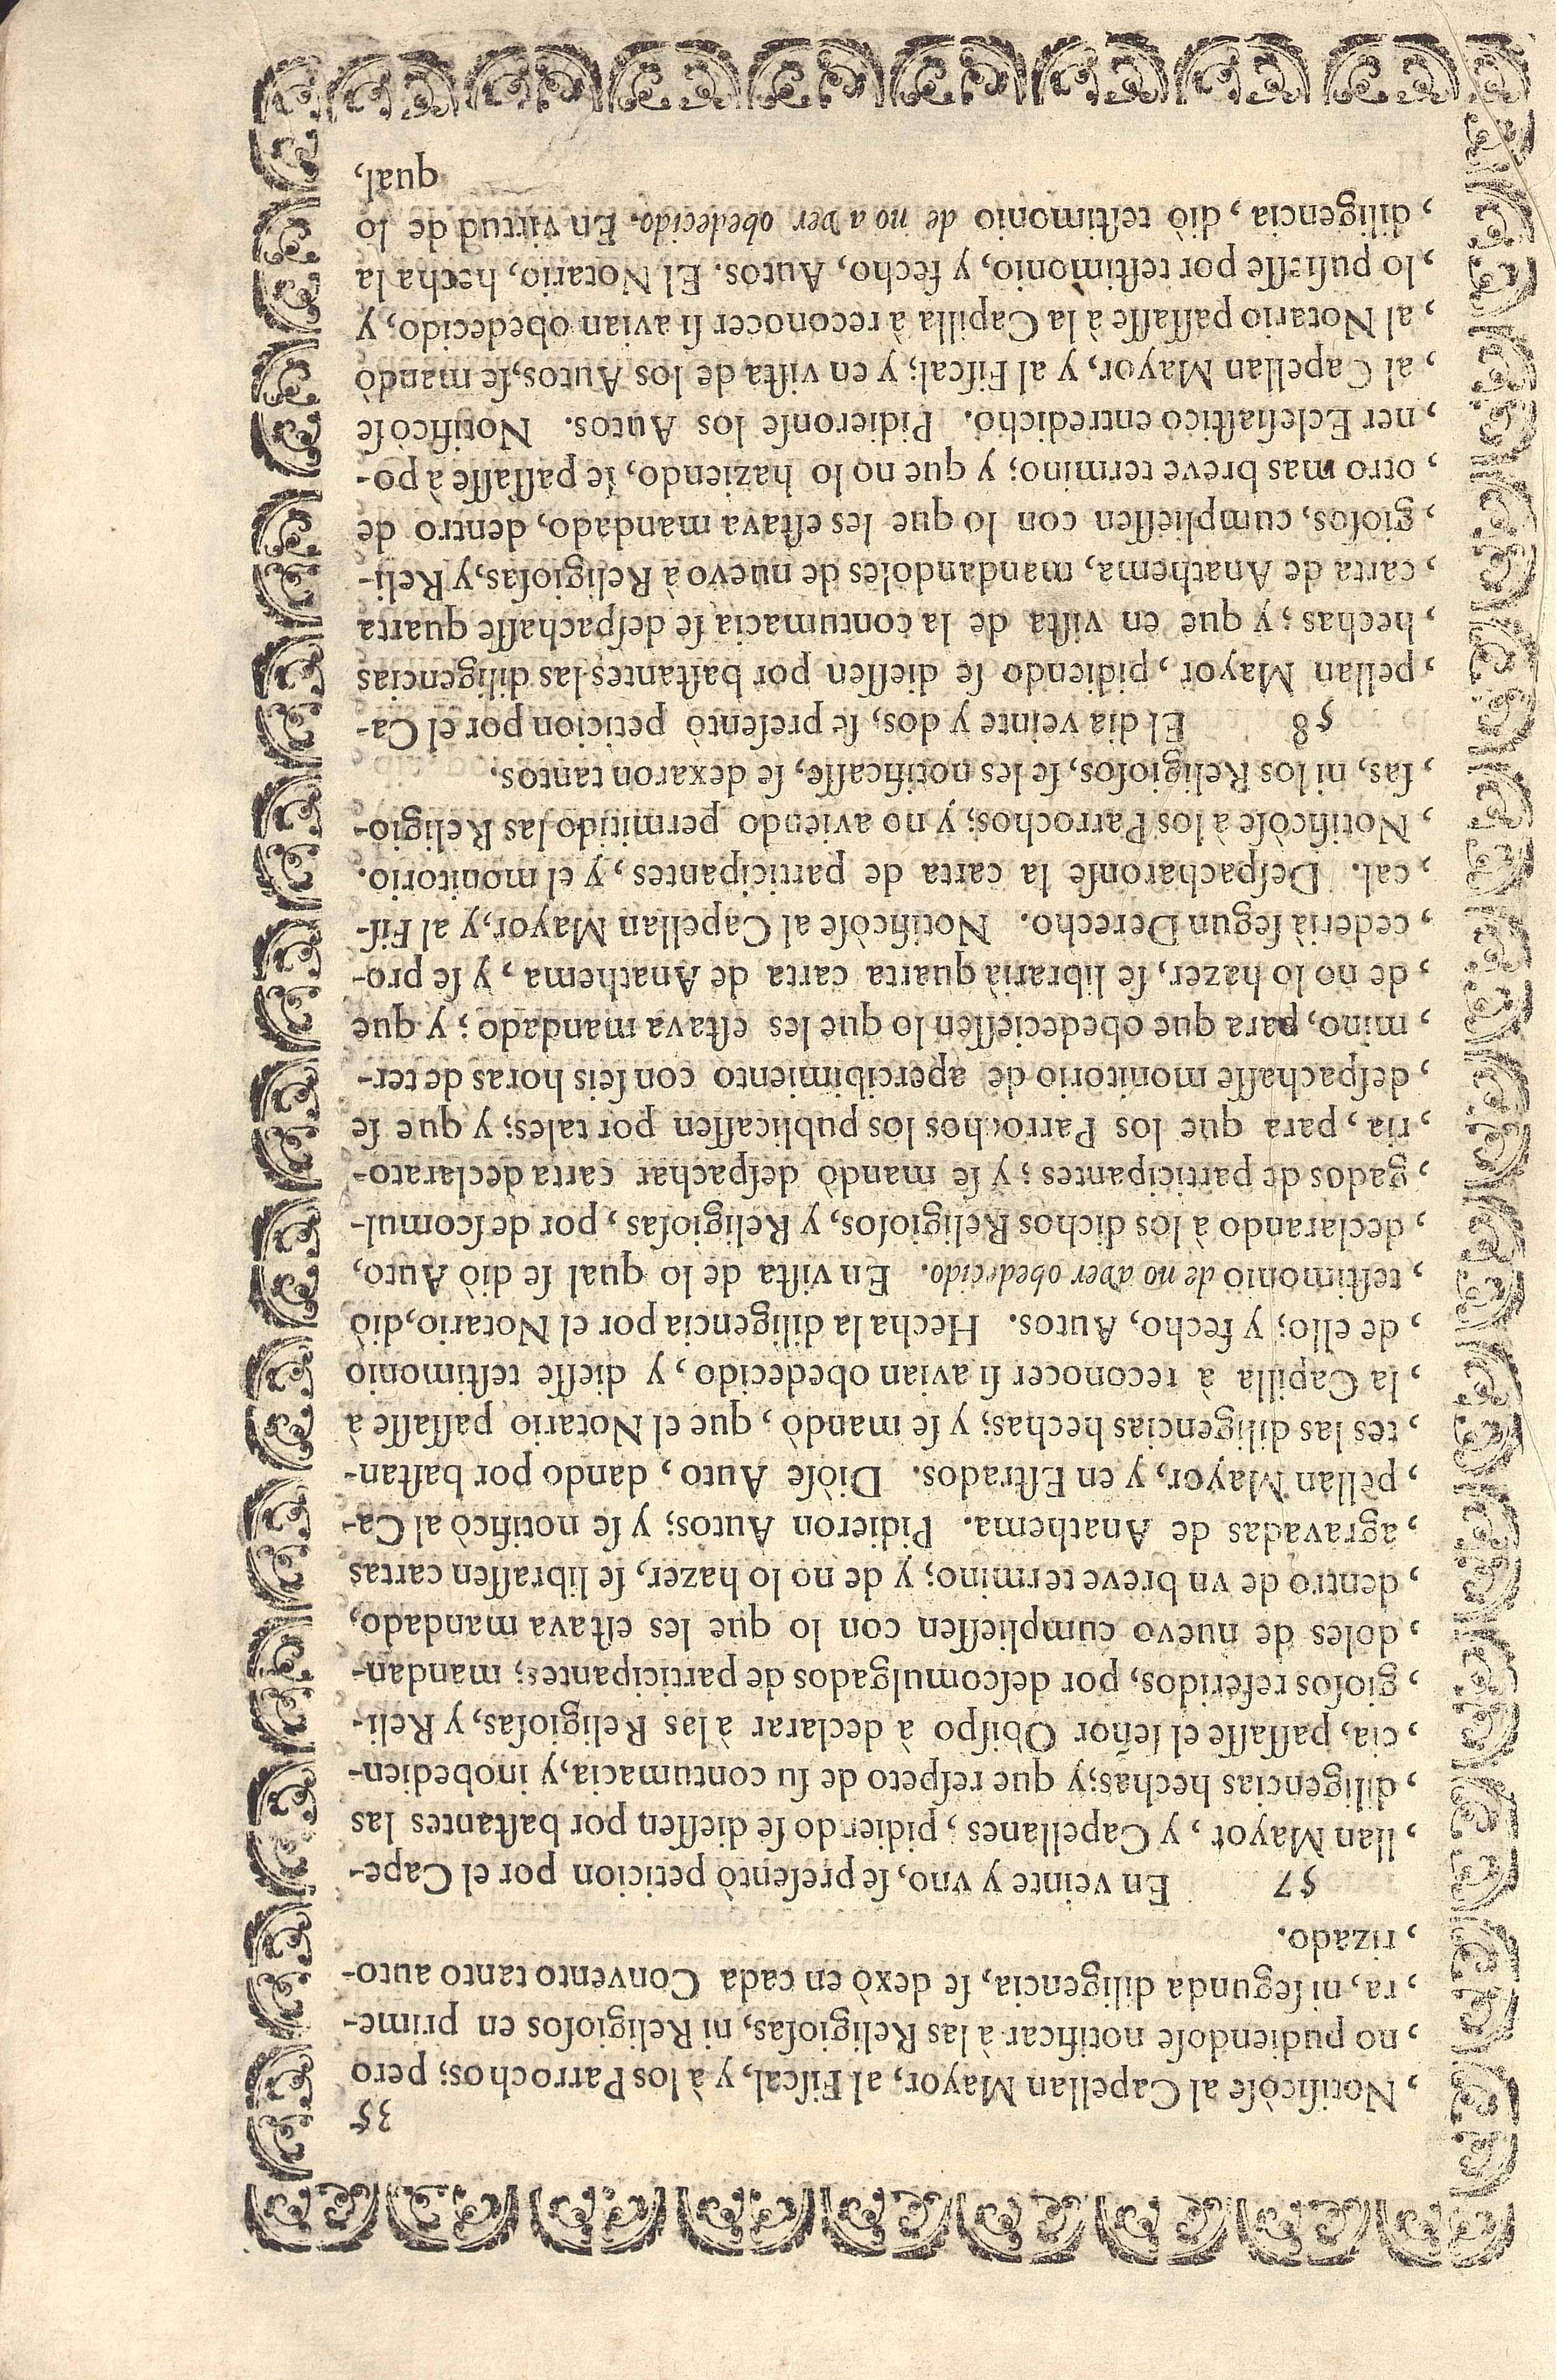 35
, Notificòſe al Capellan Mayor, al Fiſcal, y à los Parrochos; pero
, no pudiendoſe notificar à las Religioſas, ni Religioſos en prime-
, ra, ni ſegunda diligencia, ſe dexò en cada Convento tanto auto-
, rizado.
57 En veinte y vno, ſe preſentò peticion por el Cape-
, llan Mayor, y Capellanes, pidiendo ſe dieſſen por baſtantes las
, diligencias hechas; y que reſpeto de ſu contumacia, y inobedien-
, cia, paſſaſſe el ſeñor Obiſpo à declarar à las Religioſas, y Reli-
, gioſos referidos, por deſcomulgados de participantes; mandan-
, doles de nuevo cumplieſſen con lo que les eſtava mandado,
, dentro de vn breve termino; y de no lo hazer, ſe libraſſen cartas
, agravadas de Anathema. Pidieron Autos; y ſe notificò al Ca-
, pellan Mayor, y en Eſtrados. Diòſe Auto, dando por baſtan-
, tes las diligencias hechas; y ſe mandò, que el Notario paſſaſſe à
, la Capilla à reconocer ſi avian obedecido, y dieſſe teſtimonio
, de ello; y fecho, Autos. Hecha la diligencia por el Notario, diò
, teſtimonio de no aver obedecido. En viſta de lo qual ſe diò Auto,
, declarando à los dichos Religioſos, y Religioſas, por deſcomul-
, gados de participantes; y ſe mandò deſpachar carta declarato-
, ria, para que los Parrochos los publicaſſen por tales; y que ſe
, deſpachaſſe monitorio de apercibimiento con ſeis horas de ter-
, mino, para que obedecieſſen lo que les eſtava mandado; y que
, de no lo hazer, ſe librarià quarta carta de Anathema, y ſe pro-
, cederia ſegun Derecho. Notificòſe al Capellan Mayor, y al Fiſ-
, cal. Deſpacharonſe la carta de participantes, y el monitorio.
, Notificòſe à los Parrochos; y no aviendo permitido las Religio-
, ſas, ni los Religioſos, ſe les notificaſſe, ſe dexaron tantos.
58 El dia veinte y dos, ſe preſentò peticion por el Ca-
, pellan Mayor, pidiendo ſe dieſſen por baſtantes las diligencias
, hechas; y que en viſta de la contumacia ſe deſpachaſſe quarta
, carta de Anathema, mandandoles de nuevo à Religioſas, y Reli-
, gioſos, cumplieſſen con lo que les eſtava mandado, dentro de
, otro mas breve termino; y que no lo haziendo, ſe paſſaſſe à po-
, ner Ecleſiaſtico entredicho. Pidieronſe los Autos. Notificòſe
, al Capellan Mayor, y al Fiſcal; y en viſta de los Autos, ſe mandò
, al Notario paſſaſſe à la Capilla à reconocer ſi avian obedecido, y
, lo puſieſſe por teſtimonio, y fecho, Autos. El Notario, hecha la
, diligencia, diò teſtimonio de no aver obedecido. En virtud de lo
qual,